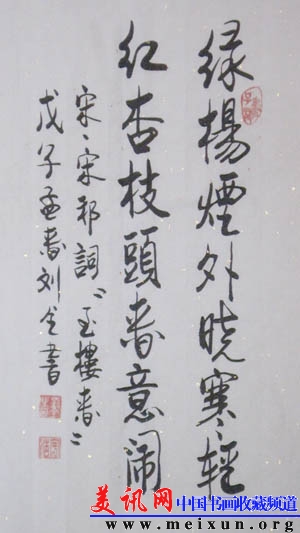 緑楊煙外晓寒轻
红杏枝頭春意闹
宋、宋祁詞“玉樓春”
戊子孟春刘書
美讯网 中国书画收藏频道
www.meixun.org